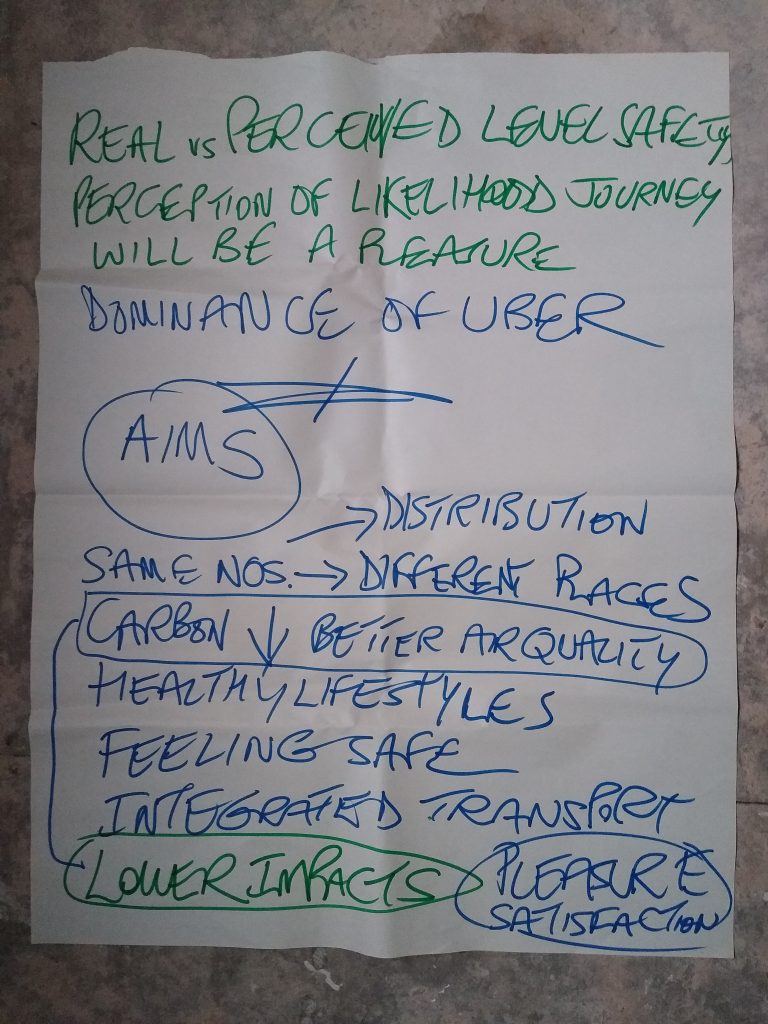 REAL vs PERCEIVED LEVEL SAFETY
PERCEPTION OF LIKELIHOOD JOURNEY
WILL BE A PLEASURE
DOMINANCE OF UBER
AIMS
→ DISTRIBUTION
SAME NOS. → DIFFERENT PLACES
CARBON ↓ BETTER AIR QUALITY
HEALTHY LIFESTYLES
FEELING SAFE
INTEGRATED TRANSPORT
LOWER IMPACTS
PLEASURE
SATISFACTION